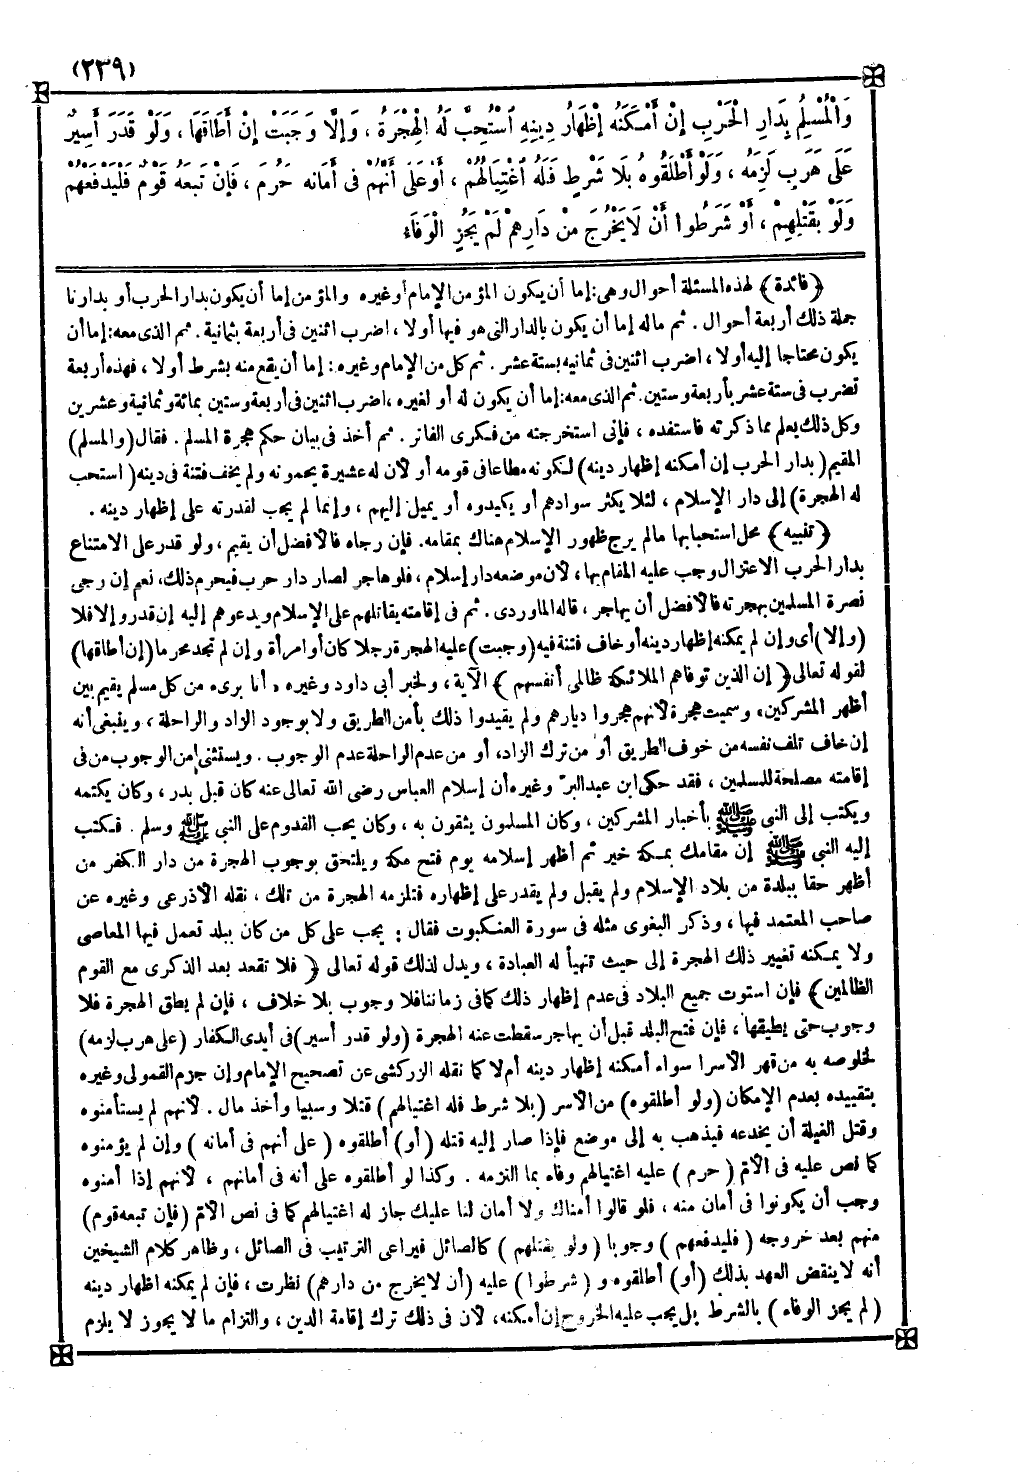 (٢٣٩)
وَالْمُسْلِمُ بِدَارِ الْحَرْبِ إنْ أَمْكَنَهُ إظْهَارُ دِينِهِ اُسْتُحِبَّ لَهُ الْهِجْرَةُ ، وَإِلَّا وَجَبَتْ إنْ أَطَاقَهَا ، وَلَوْ قَدَرَ أَسِيرٌ
عَلَى هَرَبٍ لَزِمَهُ ، وَلَوْ أَطْلَقُوهُ بِلَا شَرْطٍ فَلَهُ اغْتِيَالُهُمْ ، أَوْ عَلَى أَنَّهُمْ فِى أَمَانِهِ حَرُمَ ، فَإِنْ تَبِعَهُ قَوْمٌ فَلْيَدْفَعْهُمْ
وَلَوْ بِقَتْلِهِمْ ، أَوْ شَرَطُوا أَنْ لَا يَخْرُجَ مِنْ دَارِهِمْ لَمْ يَجُزِ الْوَفَاءُ
﴿ فائدة ﴾ لهذه المسئلة أحوال وهى : إما أن يكون المؤمن الإمام أو غيره والمؤمن إما أن يكون بدار الحرب أو بدارنا
جملة ذلك أربعة أحوال . ثم ماله إما أن يكون بالدار التى هو فيها أولا ، اضرب اثنين فى أربعة بثمانية . ثم الذى معه : إما أن
يكون محتاجا إليه أولا ، اضرب اثنين فى ثمانيه بستة عشر . ثم كل من الإمام وغيره : إما أن يقع منه بشرط أولا ، فهذه أربعة
تضرب فى ستة عشر بأربعة وستين . ثم الذى معه : إما أن يكون له أو لغيره ، اضرب اثنين فى أربعة وستين بمائة وثمانية وعشرين
وكل ذلك يعلم مما ذكرته فاستفده ، فإنى استخرجته من فكرى الفاتر . ثم أخذ فى بيان حكم هجرة المسلم . فقال ( والمسلم )
المقيم ( بدار الحرب إن أمكنه إظهار دينه ) لكونه مطاعا فى قومه أو لأن له عشيرة يحمونه ولم يخف فتنة فى دينه ( استحب
له الهجرة ) إلى دار الإسلام ، لئلا يكثر سوادهم أو يكيدوه أو يميل إليهم ، وإنما لم يجب لقدرته على إظهار دينه .
﴿ تنبيه ﴾ محل استحبابها مالم يرج ظهور الإسلام هناك بمقامه . فإن رجاه فالأفضل أن يقيم ، ولو قدر على الامتناع
بدار الحرب الاعتزال وجب عليه المقام بها ، لأن موضعه دار إسلام ، فلو هاجر لصار دار حرب فيحرم ذلك ، نعم إن رجى
نصرة المسلمين بهجرته فالأفضل أن يهاجر ، قاله الماوردى . ثم فى إقامته يقاتلهم على الإسلام ويدعوهم إليه إن قدر وإلا فلا
( وإلا ) أى وإن لم يمكنه إظهار دينه أو خاف فتنة فيه ( وجبت ) عليه الهجرة رجلا كان أو امرأة وإن لم تجد محرما ( إن أطاقها )
لقوله تعالى ﴿ إن الذين توفاهم الملائكة ظالمى أنفسهم ﴾ الآية ، ولخبر أبى داود وغيره « أنا برىء من كل مسلم يقيم بين
أظهر المشركين» وسميت هجرة لأنهم هجروا ديارهم ولم يقيدوا ذلك بأمن الطريق ولا بوجود الزاد والراحلة ، وينبغى أنه
إن خاف تلف نفسه من خوف الطريق أو من ترك الزاد، أو من عدم الراحلة عدم الوجوب . ويستثنى من الوجوب من فى
إقامته مصلحة للمسلمين ، فقد حكى ابن عبد البرّ وغيره أن إسلام العباس رضى الله تعالى عنه كان قبل بدر ، وكان يكتمه
ويكتب إلى النبى ﷺ بأخبار المشركين ، وكان المسلمون يثقون به ، وكان يحب القدوم على النبى ﷺ وسلم . فكتب
إليه النبى ﷺ إن مقامك بمكة خير ثم أظهر إسلامه يوم فتح مكة ويلتحق بوجوب الهجرة من دار الكفر من
أظهر حقا ببلدة من بلاد الإسلام ولم يقبل ولم يقدر على إظهاره فتلزمه الهجرة من تلك ، نقله الأذرعى وغيره عن
صاحب المعتمد فيها ، وذكر البغوى مثله فى سورة العنكبوت فقال : يجب على كل من كان ببلد تعمل فيها المعاصى
ولا يمكنه تغيير ذلك الهجرة إلى حيث تتهيأ له العبادة ، ويدل لذلك قوله تعالى ﴿ فلا تقعد بعد الذكرى مع القوم
الظالمين ﴾ فإن استوت جميع البلاد فى عدم إظهار ذلك كما فى زماننا فلا وجوب بلا خلاف ، فإن لم يطق الهجرة فلا
وجوب حتى يطيقها ، فإن فتح البلد قبل أن يهاجر سقطت عنه الهجرة ( ولو قدر أسير ) فى أيدى الكفار ( على هرب لزمه )
لخلوصه به من قهر الأسر سواء أمكنه إظهار دينه أم لا كما نقله الزركشى عن تصحيح الإمام وإن جزم القمولى وغيره
بتقييده بعدم الإمكان ( ولو أطلقوه ) من الأسر ( بلا شرط فله اغتيالهم ) قتلا وسبيا وأخذ مال . لأنهم لم يستأمنوه
وقتل الغيلة أن يخدعه فيذهب به إلى موضع فإذا صار إليه قتله ( أو ) أطلقوه ( على أنهم فى أمانه ) وإن لم يؤمنوه
كما نص عليه فى الأم ( حرم ) عليه اغتيالهم وفاء بما التزمه . وكذا لو أطلقوه على أنه فى أمانهم ، لأنهم إذا أمنوه
وجب أن يكونوا فى أمان منه ، فلو قالوا أمناك ولا أمان لنا عليك جاز له اغتيالهم كما فى نص الأم ( فإن تبعه قوم )
منهم بعد خروجه ( فليدفعهم ) وجوبا ( ولو بقتلهم ) كالصائل فيراعى الترتيب فى الصائل ، وظاهر كلام الشيخين
أنه لا ينقض العهد بذلك ( أو ) أطلقوه و ( شرطوا ) عليه ( أن لا يخرج من دارهم ) نظرت ، فإن لم يمكنه اظهار دينه
( لم يجز الوفاء ) بالشرط بل يجب عليه الخروج إن أمكنه، لأن فى ذلك ترك إقامة الدين ، والتزام ما لا يجوز لا يلزم